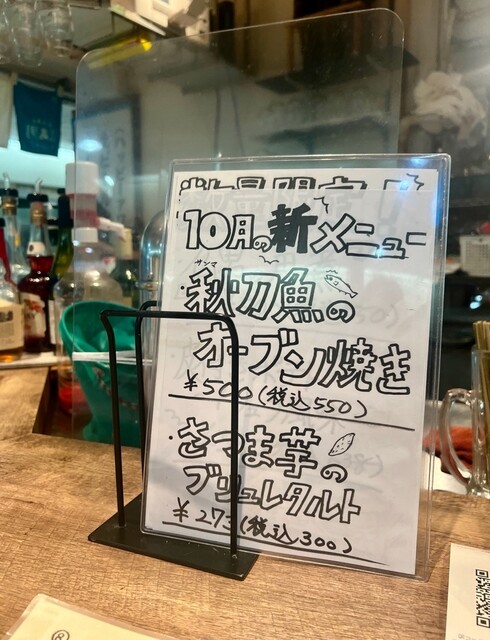 10月の新メニュー
サンマ
・秋刀魚の
オーブン焼き
¥500(税込550)
・さつま芋の
ブリュレタルト
¥273(税込300)